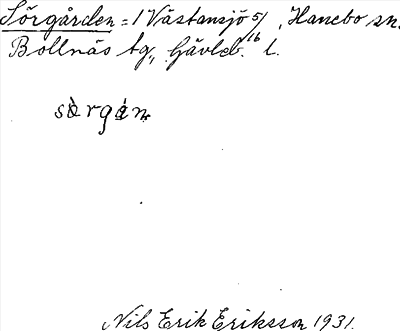 Sörgården = / Västansjö 5/16, Hanebo sn.
Bollnäs tg, Gävleb. l.
Nils Erik Eriksson 1931.